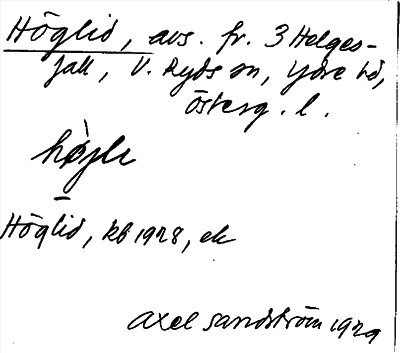 Höglid, avs. fr. 3 Helges-
fall, V. Ryds sn, Ydre hd,
Österg. l.
hø̀glı
Höglid, kb 1928, ek
Axel Sandström 1929